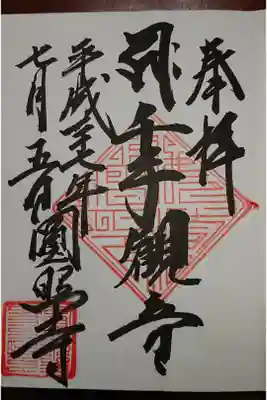 奉拝
千手觀音
平成二十七年
七月五日 圓照寺